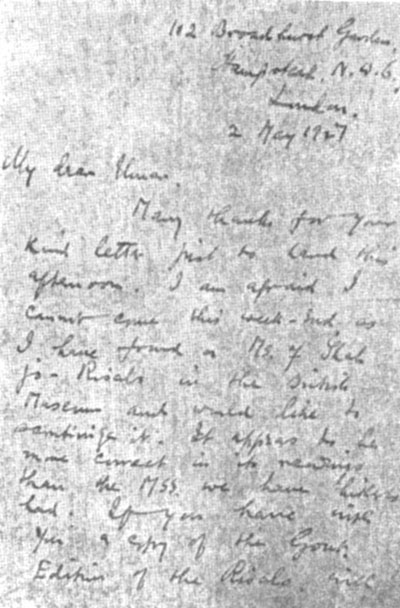 112 Broadhurst Gardens,
Hampstead, N.W.6,
London.
2 May 1927
My dear
Many thanks for your
kind letter just to hand this
afternoon. I am afraid I
cannot come this week-end, as
I have found a MS. of Shah
jo- Risalo in the British
Museum and would like to
scrutinize it. It appears to be
more correct in its readings
than the MSS. we have hitherto
had. If you have with
you a copy of the Govt.
Edition of the Risalo, will